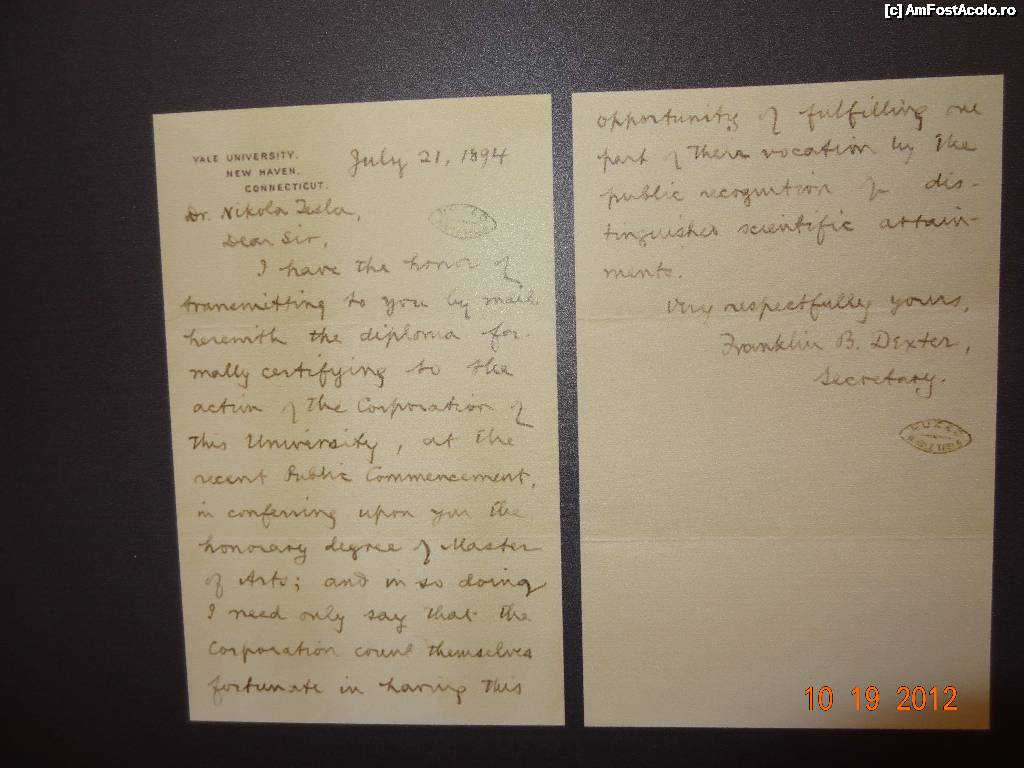 [c] AmFostAcolo.ro
YALE UNIVERSITY.
NEW HAVEN,
CONNECTICUT.
July 21, 1894
Dr. Nikola Tesla,
Dear Sir,
I have the honor of
transmitting to you by mail
herewith the diploma for-
mally certifying to the
action of the Corporation of
this University, at the
recent Public Commencement,
in conferring upon you the
honorary degree of Master
of Arts; and in so doing
I need only say that the
Corporation count themselves
fortunate in having this
opportunity of fulfilling one
part of their vocation by the
public recognition of dis-
tinguished scientific attain-
ments.
Very respectfully yours,
Franklin B. Dexter,
Secretary.
10 19 2012